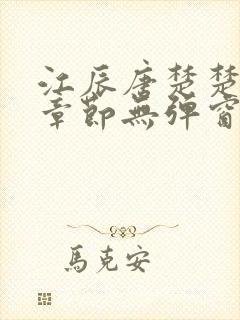 江辰唐楚楚
章節無彈窗
馬克安